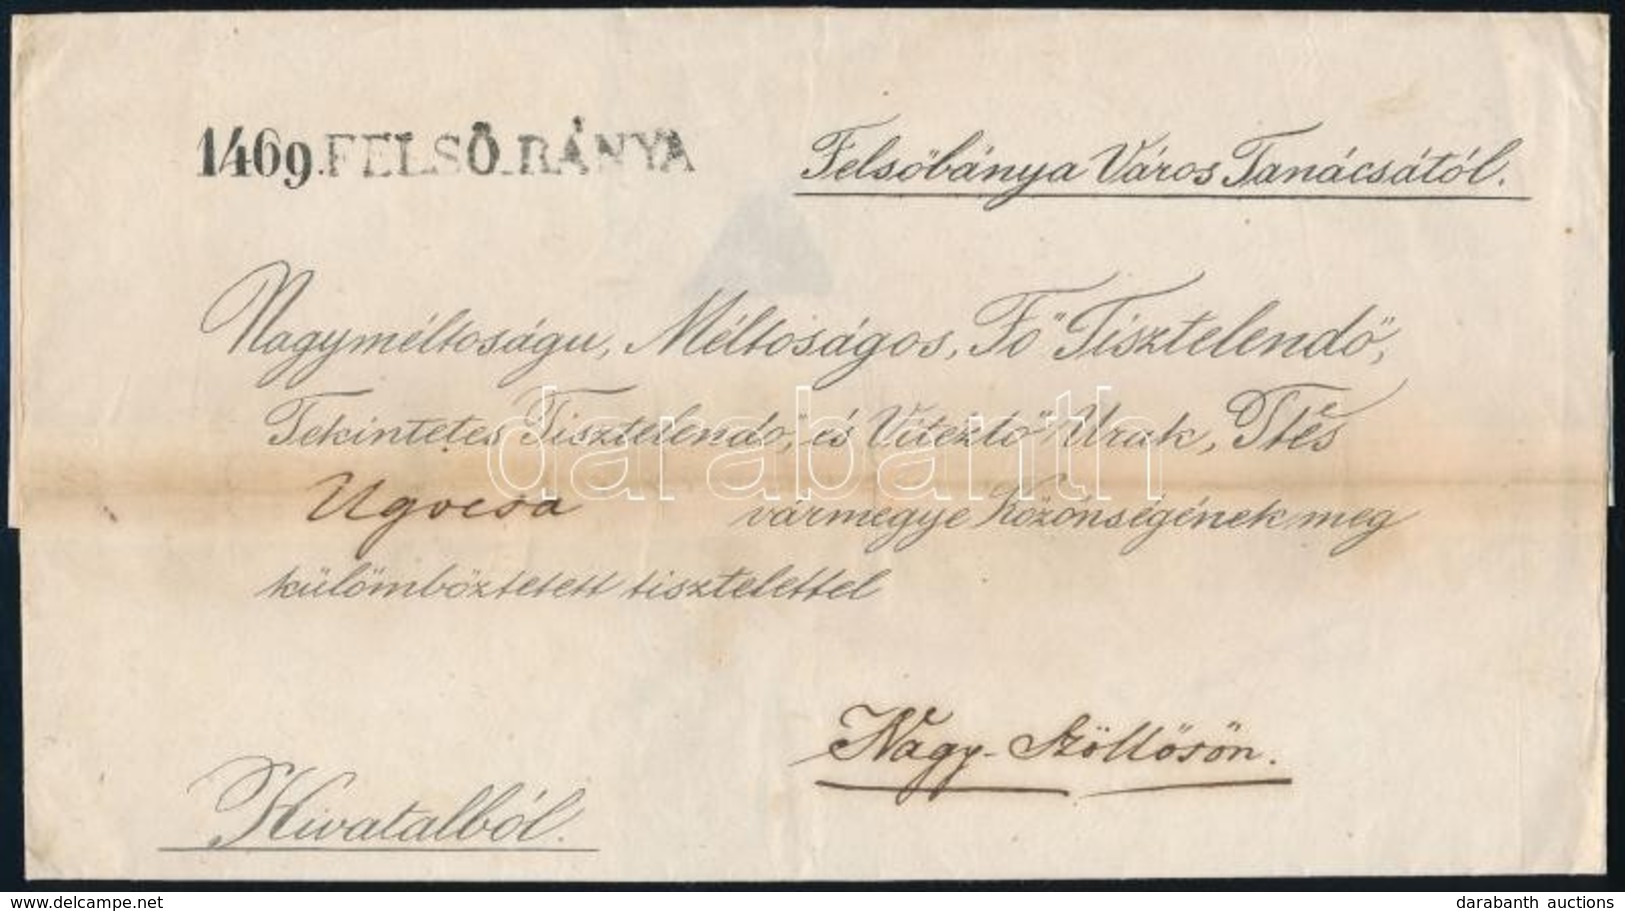 1469. FELSŐ BÁNYA
Felsőbánya Város Tanácsától.
Nagyméltoságu, Méltoságos, Fő Tisztelendő,
Tekintetes Tisztelendő, és Vitézlő Urak, Ttės
Ugocsa vármegye Közönségének meg
külömböztetett tisztelettel
Nagy-Szöllösön.
Hivatalból.
darabanth
delcampe.net
darabanth auctions